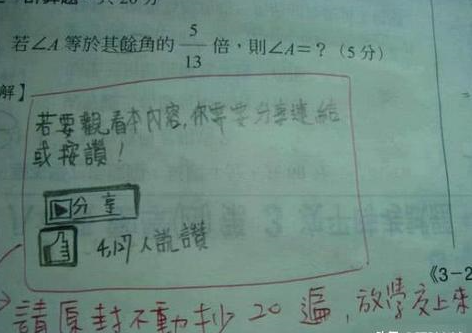 若∠A等於其餘角的 5/13 倍,則∠A=?(5分)
解】
若要觀看本內容,你需要分享連結
或按讚!
分享
4,127人說讚
《3-2
請原封不動抄20遍,放學交上來